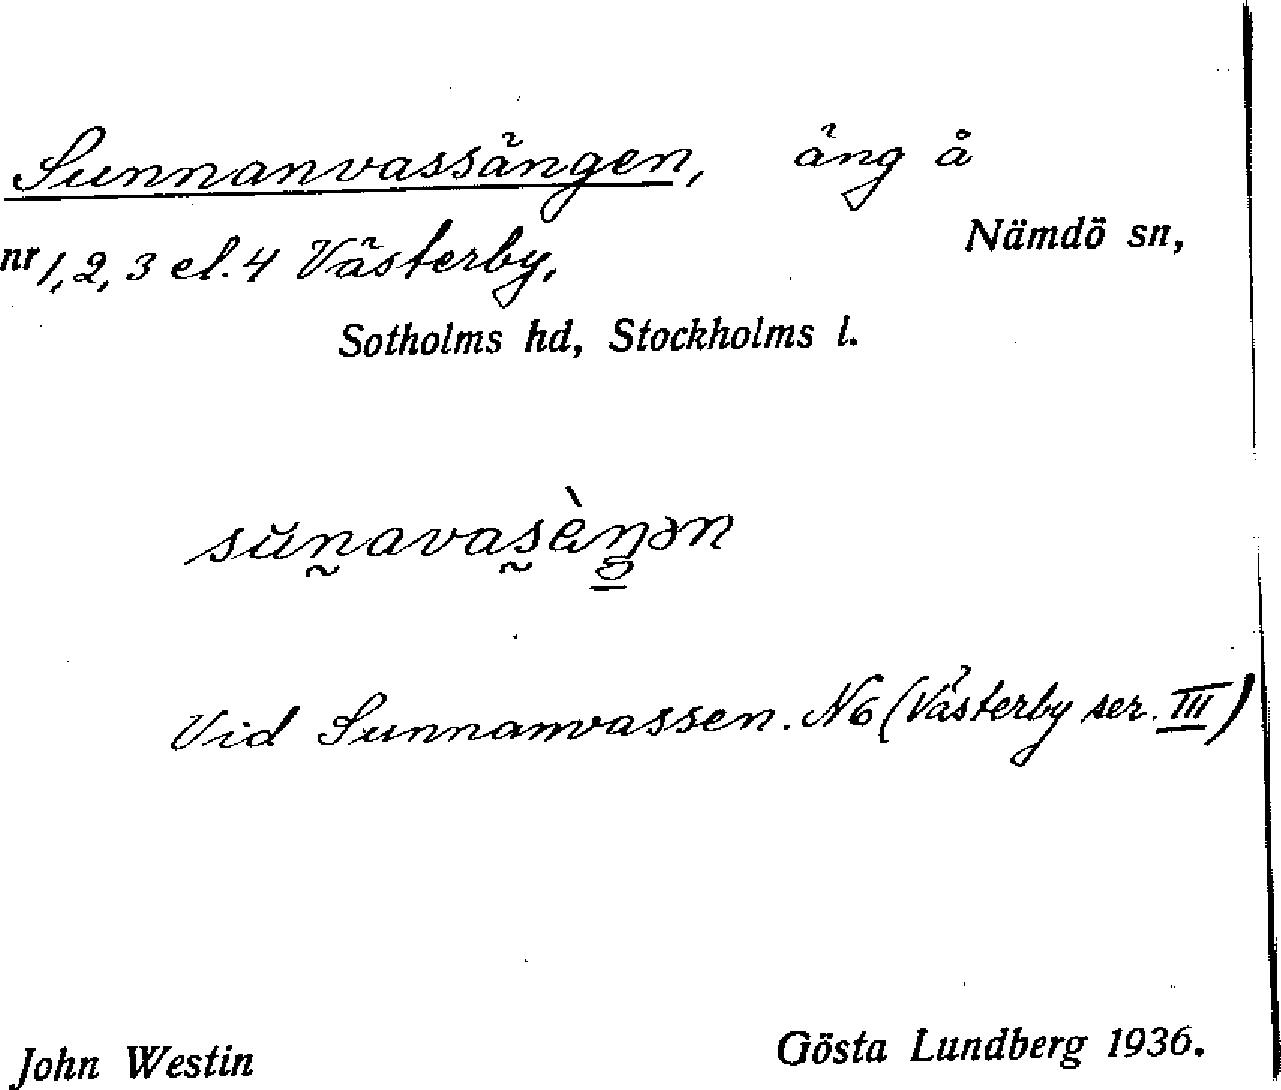 Sunnanvassängen, äng å
nr 1, 2, 3 el. 4 Västerby, Nämdö sn,
Sotholms hd, Stockholms l.
Vid Sunnanvassen. N6 (Västerby ser. III)
John Westin Gösta Lundberg 1936.